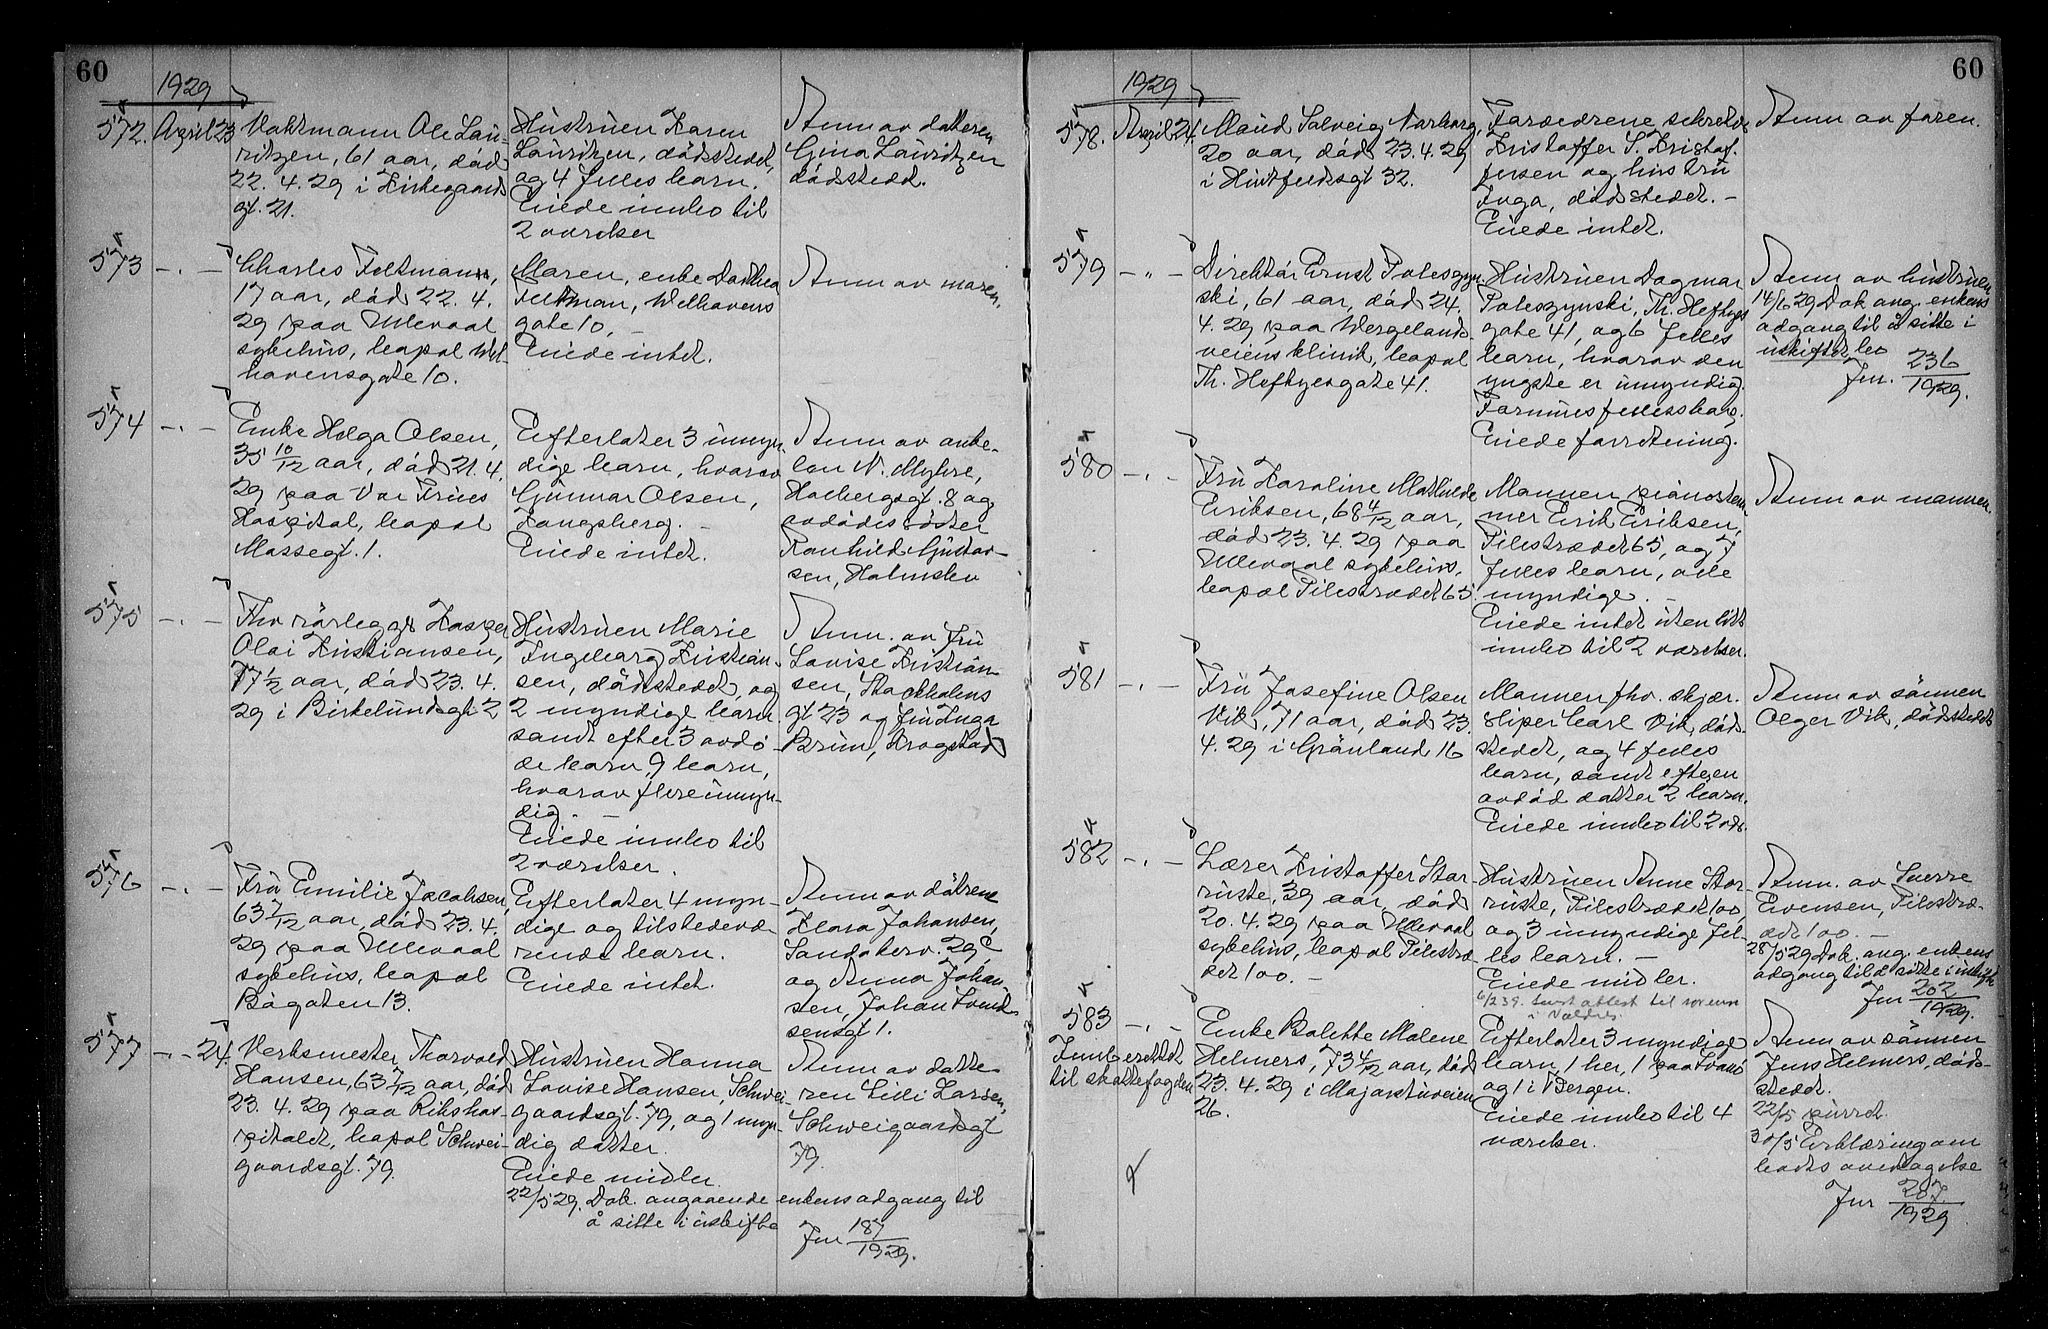 60
1929
572. April 23
Vaktmann Ole Lau-
ritzen, 61 aar, död
22. 4. 29 i Kirkegaards
gt. 21.
Hustruen Karen
Lauritzen, dödsstedet,
og 4 felles barn.
Eiede innbo til
2 værelser
Anm av datteren
Gina Lauritzen
dödsstedet.
573 - . -
Charles Feltmann,
17 aar, död 22. 4.
29 paa Ullevaal
sykehus, bopæl Wel-
havensgate 10.
Moren, enke Dorthea
Feltman, Welhavens
gate 10. -
Eiede intet.
Anm av moren.
574 - . -
Enke Helga Olsen,
35 10/12 aar, död 21. 4.
29 paa Vor Frues
Hospital, bopæl
Mossegt. 1.
Efterlater 3 umyn-
dige barn, hvorav
Gunnar Olsen,
Kongsberg. -
Eiede intet.
Anm av onke-
len N. Myhre,
Holbergsgt. 8 og
avdödes söster
Ranhild Gustav-
sen, Holmsbu
575 - . -
Fhv rörlegger Kasper
Olai Kristiansen,
77 1/2 aar, död 23. 4.
29 i Birkelundsgt 2
Hustruen Marie
Ingeborg Kristian-
sen, dödsstedet, og
2 myndige barn
samt efter 3 avdö-
de barn 9 barn,
hvorav flere umyn-
dig. -
Eiede innbo til
2 værelser.
Anm. av fru
Lovise Kristian-
sen, Stockholms
gt 23 og fru Inga
Brun, Krogstad
576 - . -
Fru Emilie Jacobsen,
63 7/12 aar, död 23. 4.
29 paa Ullevaal
sykehus, bopæl
Bögaten 13.
Efterlater 4 myn-
dige og tilstedevæ-
rende barn.
Eiede intet.
Anm av dötrene
Klara Johansen,
Sandakerv. 29 c
og Anna Johan-
sen, Johan Svend-
sensgt 1.
577 - - 24.
Verksmester Thorvald
Hansen, 63 7/12 aar, död
23. 4. 29 paa Rikshos-
pitalet, bopæl Schwei-
gaardsgt. 79.
Hustruen Hanna
Lovise Hansen, Schwei-
gaardsgt. 79, og 1 myn-
dig datter.
Eiede midler.
22/5 29. Dok. angaaende enkens adgang til
å sitte i uskiftebo
Anm av datte-
ren Lilli Larsen,
Schweigaardsgt
79.
Jnr 187/1929.
60
1929
578. April 24.
Maud Solveig Norborg,
20 aar, död 23. 4. 29
i Huitfeldtsgt 32.
Forældrene sekretær
Kristoffer S. Kristof-
fersen og hustru
Inga, dödsstedet. -
Eiede intet.
Anm av faren.
579 - " -
Direktör Ernst Poleszyn-
ski, 61 aar, död 24.
4. 29 paa Wergelands-
veiens klinik, bopæl
Th. Heftyesgate 41.
Hustruen Dagmar
Poleszynski, Th. Heftyes
gate 41, og 6 felles
barn, hvorav den
yngste er umyndig.
Formuesfellesskap.
Eiede forretning.
Anm av hustruen
14/6 29 Dok ang. enkens
adgang til å sitte i
uskiftet bo
Jnr. 236/1929.
580 - . -
Fru Karoline Mathilde
Eriksen, 68 4/12 aar,
död 23. 4. 29 paa
Ullevaal sykehus,
bopæl Pilestrædet 65.
Mannen pianostem-
mer Erik Eriksen,
Pilestrædet 65, og 7
felles barn, alle
myndige. -
Eiede intet uten litt
innbo til 2 værelser.
Anm av mannen.
581 - . -
Fru Josefine Olsen
Vik, 71 aar, död 23.
4. 29 i Grönland 16
Mannen fhv. skjær-
sliper Carl Vik, död-
stedet, og 4 felles
barn, samt efter en
avdöd datter 2 barn.
Eiede innbo til 2 vær.
Anm av sönnen
Olger Vik, dödsstedet
582 - . -
Lærer Kristoffer Stor-
ruste, 39 aar, död
20. 4. 29 paa Ullevaal
sykehus, bopæl Pilestræ-
det 100. -
Hustruen Anne Stor-
ruste, Pilestrædet 100,
og 3 umyndige fel-
les barn. -
Eiede midler.
6/2 39. Sendt attest til sorenskr
i Valdres.
Anm. av Sverre
Evensen, Pilestræ-
det 100. -
28/5 29 Dok. ang. enkens
adgang til å sitte i uskifte
Jnr 202/1929.
583 - . -
Innberettet
til skattefogden
Enke Bolette Malene
Helmers, 73 4/12 aar, död
23. 4. 29 i Majorstuveien
26.
Efterlater 3 myndige
barn, 1 her, 1 paa Svanö
og 1 i Bergen.
Eiede innbo til 4
værelser.
Anm av sönnen
Jens Helmers, död-
stedet.
22/5 purret
30/5 Erklæring om
boets overtagelse
Jnr 207/1929.